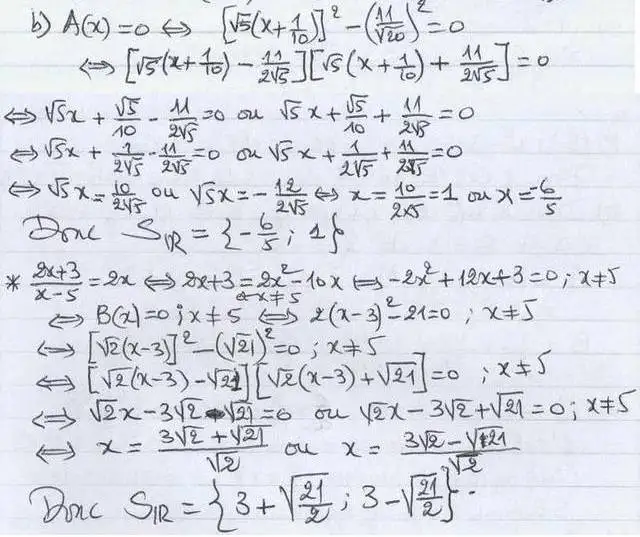 b) A(x)=0 ⇔ [√5(x+1/10)]² - (11/√20)² = 0
⇔ [√5(x+1/10) - 11/2√5][√5(x+1/10) + 11/2√5] = 0
⇔ √5x + √5/10 - 11/2√5 = 0 ou √5x + √5/10 + 11/2√5 = 0
⇔ √5x + 1/2√5 - 11/2√5 = 0 ou √5x + 1/2√5 + 11/2√5 = 0
⇔ √5x = 10/2√5 ou √5x = -12/2√5 ⇔ x = 10/2×5 = 1 ou x = -6/5
Donc S_IR = {-6/5 ; 1}
* 2x+3/x-5 = 2x ⇔ 2x+3 = 2x² - 10x ⇔ -2x² + 12x + 3 = 0 ; x≠5
et x≠5
⇔ B(x)=0 ; x≠5 ⇔ 2(x-3)² - 21 = 0 ; x≠5
⇔ [√2(x-3)]² - (√21)² = 0 ; x≠5
⇔ [√2(x-3) - √21][√2(x-3) + √21] = 0 ; x≠5
⇔ √2x - 3√2 - √21 = 0 ou √2x - 3√2 + √21 = 0 ; x≠5
⇔ x = 3√2 + √21/√2 ou x = 3√2 - √21/√2
Donc S_IR = {3 + √21/2 ; 3 - √21/2}.